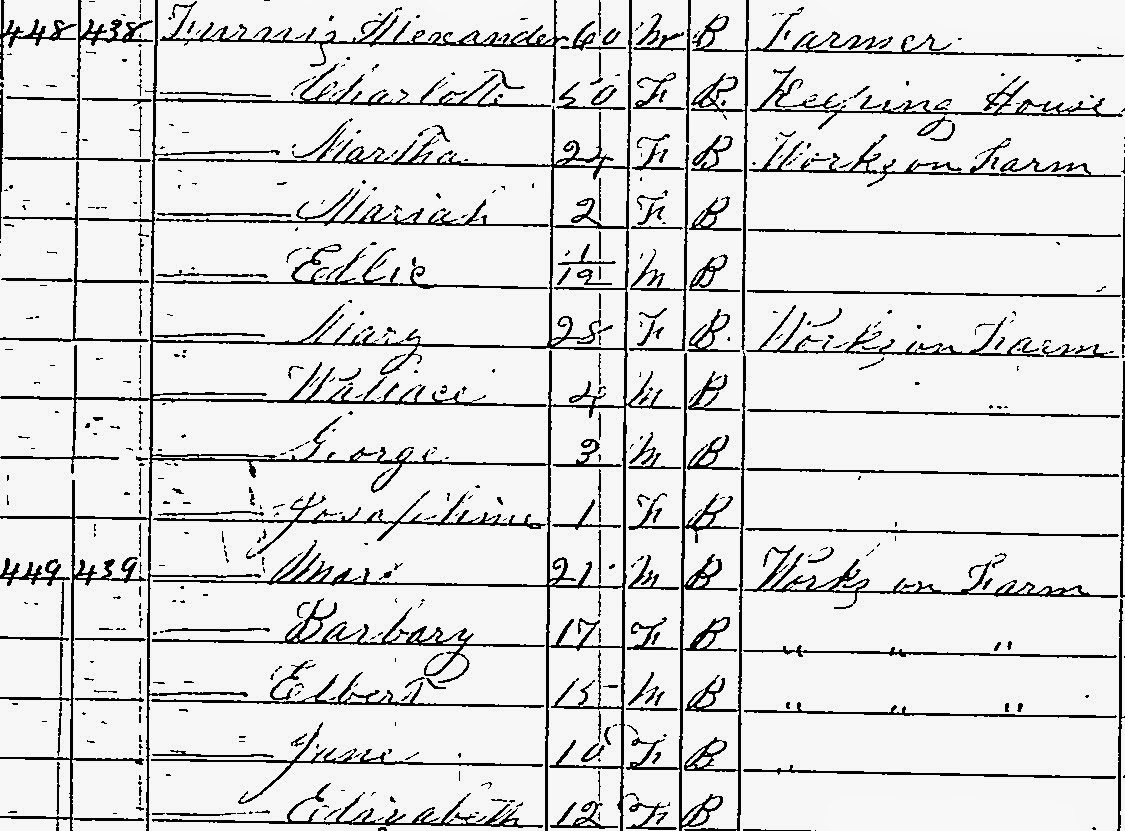 448 438 Furniz Alexander 60 M B Farmer
Charlotte 50 F B Keeping House
Martha 24 F B Works on Farm
Mariah 2 F B
Edlie 1/12 M B
Mary 28 F B Works on Farm
Wallace 4 M B
George 3 M B
1 F B
449 439 21 M B Works on Farm
Barbary 17 F B " " "
Elbert 15 M B " " "
June 10 F B "
12 F B